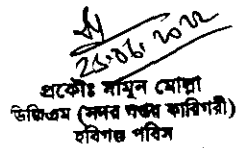 25.06.2022
প্রকৌঃ মামুন মোল্লা
ডিজিএম (সদর দপ্তর কারিগরী)
হবিগঞ্জ পবিস